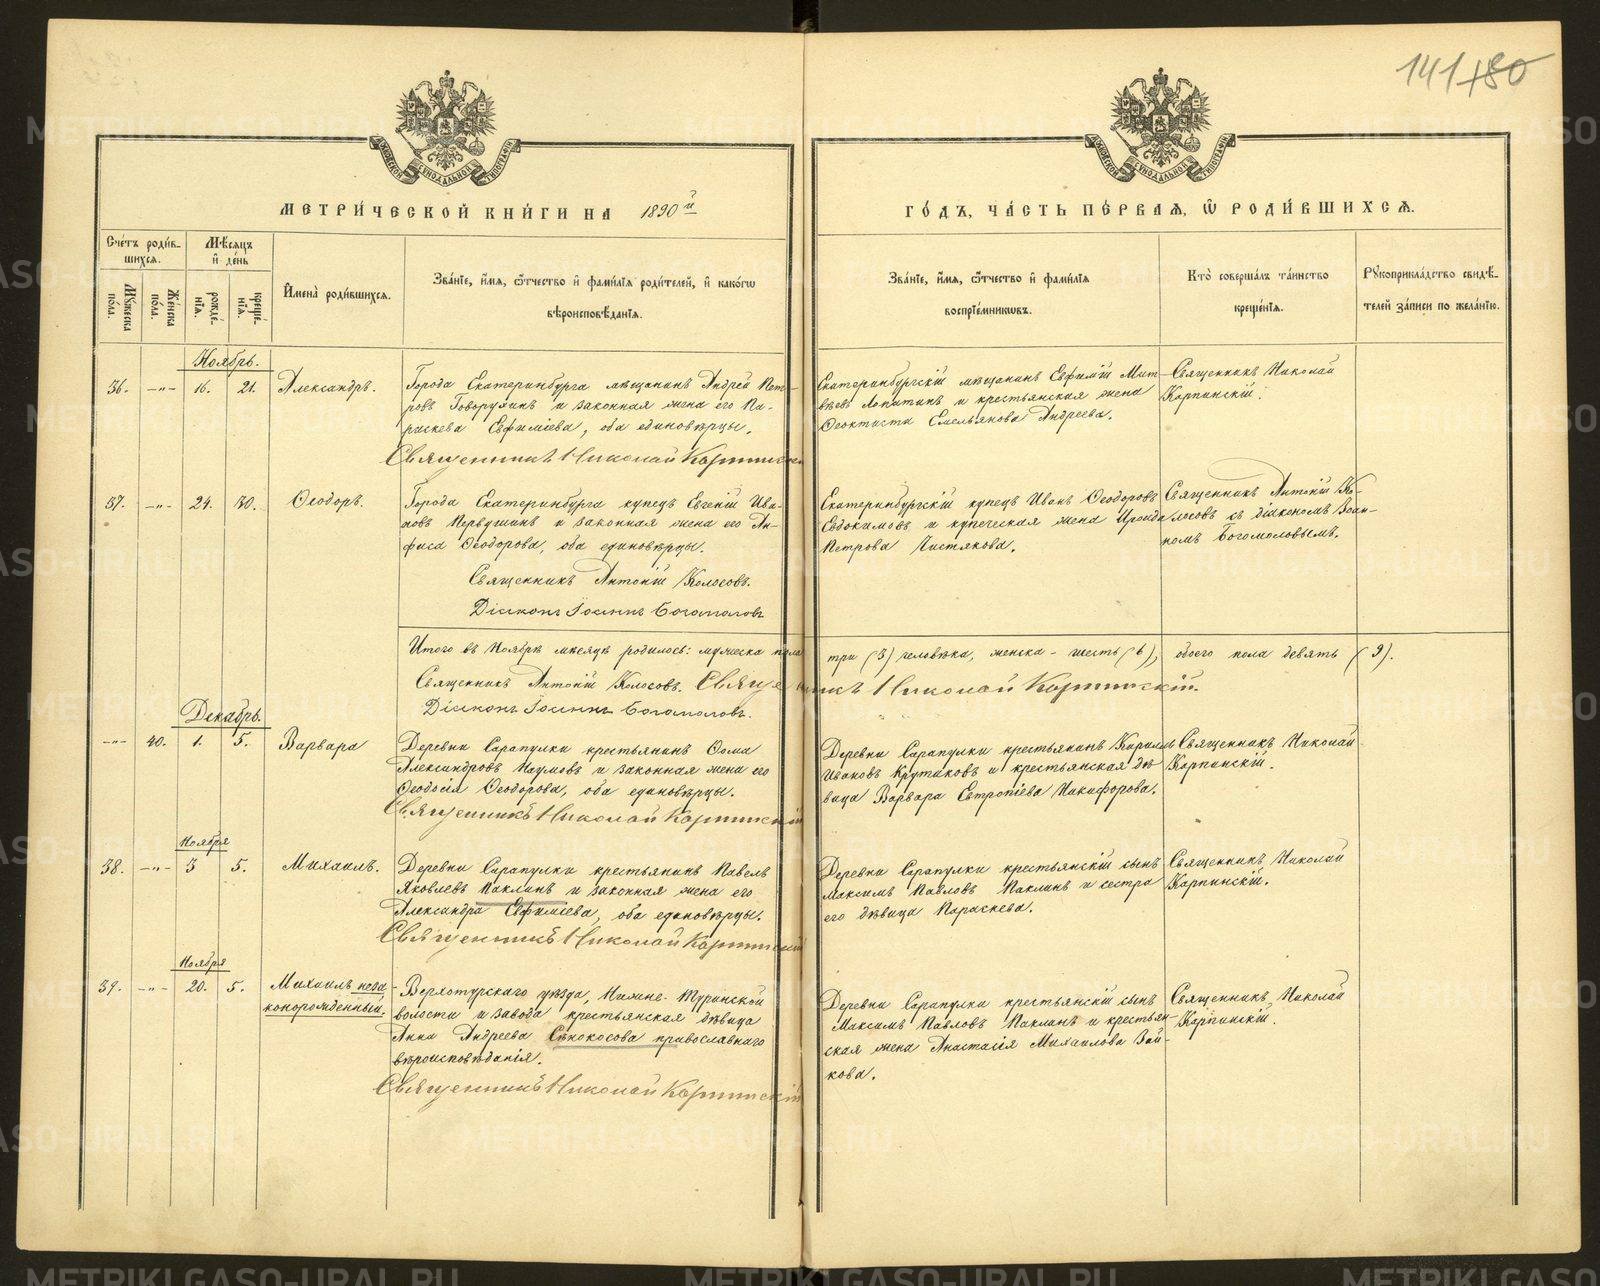 141 180
МЕТРИ́ЧЕСКОЙ КНИ́ГИ НА 1890й
ГО́ДЪ, ЧА́СТЬ ПЕ́РВАЯ, Ѽ РОДИ́ВШИХСЯ.
Сче́тъ роди́в-
шихся.
Му́жеска по́ла.
Же́нска по́ла.
Мѣ́сяцъ
и де́нь
рожде́-
нія.
креще́-
нія.
Имена̀ роди́вшихся.
Зва́ніе, и́мя, ѻ́тчество и фами́лія роди́телей, и како́гѡ
вѣроисповѣ́данія.
Зва́ніе, и́мя, ѻ́тчество и фами́лія
воспріе́мниковъ.
Кто̀ соверша́лъ та́инство
креще́нія.
Рꙋкоприкла́дство свидѣ́-
телей за́писи по жела́нію.
Ноябрь.
36. -"- 16. 21. Александръ.
Города Екатеринбурга мѣщанинъ Андрей Пет-
ровъ Говорухинъ и законная жена его Па-
раскева Евфиміева, оба единовѣрцы.
Священникъ Николай Карпинскій
Екатеринбургскій мѣщанинъ Евфимій Мат-
вѣевъ Лопатинъ и крестьянская жена
Ѳеоктиста Емельянова Андреева.
Священникъ Николай
Карпинскій.
37. -"- 24. 30. Ѳеодоръ.
Города Екатеринбурга купецъ Евгеній Ива-
новъ Первушинъ и законная жена его Ан-
фиса Ѳеодорова, оба единовѣрцы.
Священникъ Антоній Колосовъ.
Діаконъ Іоаннъ Богомоловъ
Екатеринбургскій купецъ Иванъ Ѳеодоровъ
Евдокимовъ и купеческая жена Ираида
Петрова Чистякова.
Священникъ Антоній Ко-
лосовъ съ діакономъ Іоан-
номъ Богомоловымъ.
Итого въ Ноябрѣ мѣсяцѣ родилось: мужеска пола три (3) человѣка, женска - шесть (6), обоего пола девять (9).
Священникъ Антоній Колосовъ. Священникъ Николай Карпинскій.
Діаконъ Іоаннъ Богомоловъ.
Декабрь.
-"- 40. 1. 5. Варвара
Деревни Сарапулки крестьянинъ Ѳома
Александровъ Наумовъ и законная жена его
Ѳеодосія Ѳеодорова, оба единовѣрцы.
Священникъ Николай Карпинскій
Деревни Сарапулки крестьянинъ Кириллъ
Ивановъ Крутиковъ и крестьянская дѣ-
вица Варвара Евтропіева Никифорова.
Священникъ Николай
Карпинскій.
Ноября
38. -"- 3 5. Михаилъ.
Деревни Сарапулки крестьянинъ Павелъ
Яковлевъ Паклинъ и законная жена его
Александра Евфиміева, оба единовѣрцы.
Священникъ Николай Карпинскій
Деревни Сарапулки крестьянскій сынъ
Максимъ Павловъ Паклинъ и сестра
его дѣвица Параскева.
Священникъ Николай
Карпинскій.
Ноября
39. -"- 20. 5. Михаилъ неза-
конорожденный.
Верхотурскаго уѣзда, Нижне-Туринской
волости и завода крестьянская дѣвица
Анна Андреева Сѣнокосова православнаго
вѣроисповѣданія.
Священникъ Николай Карпинскій
Деревни Сарапулки крестьянскій сынъ
Максимъ Павловъ Паклинъ и крестьян-
ская жена Анастасія Михаилова Зай-
кова.
Священникъ Николай
Карпинскій.
METRIKI.GASO-URAL.RU